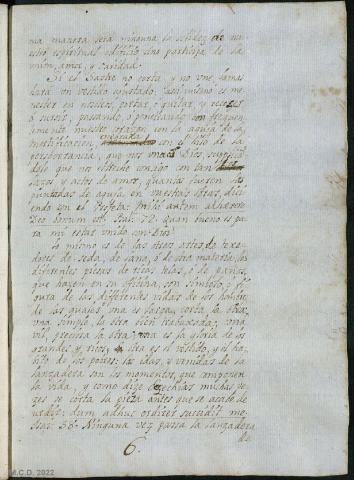 na manera será ninguna la solidez de nu
estro espiritual edificio sino participa de la
union, amor, y caridad.
Si el Sastre no corta, y no vne, jamas
hará un vestido ajustado: assi mismo es me
nester en nosotros, cortar, o quitar, y recoger
o surcir, passando, o penetrando con frequen
temente nuestro corazon con la aguja de la
mortificacion, con el hilo de la
perseverancia, que nos una á Dios, suplican
dole que nos estreche consigo con tan
lazos, y actos de amor, quantas fueren las
puntadas de aguja en nuestras obras, dici
endo con el Profeta: mihi autem adhærere
Deo bonum est. Psal. 72. Quan bueno es pa
ra mi estar unido con Dios!
Lo mismo es de las otras artes de texe
dores de seda, de lana, o de otra materia; las
diferentes piezas de ricas telas, o de paños,
que hazen en su officina, son simbolo, o fi
gura de las differentes vidas de los hombres
de las quales una es larga, corta la otra,
una simple, la otra bien trabaxada; una
vil, preciosa la otra; una es la gloria de los
grandes, y ricos, otra es el vestido, y el ha
bito de los pobres: las idas, y venidas de su
lanzadera son los momentos, que componen
la vida, y como dize Ezechias muchas ve
zes se corta la pieza antes que se acabe de
urdir: dum adhuc ordirer succidit me.
Isai. 38. Ninguna vez passa la lanzadera
6.
M.C.D. 2022